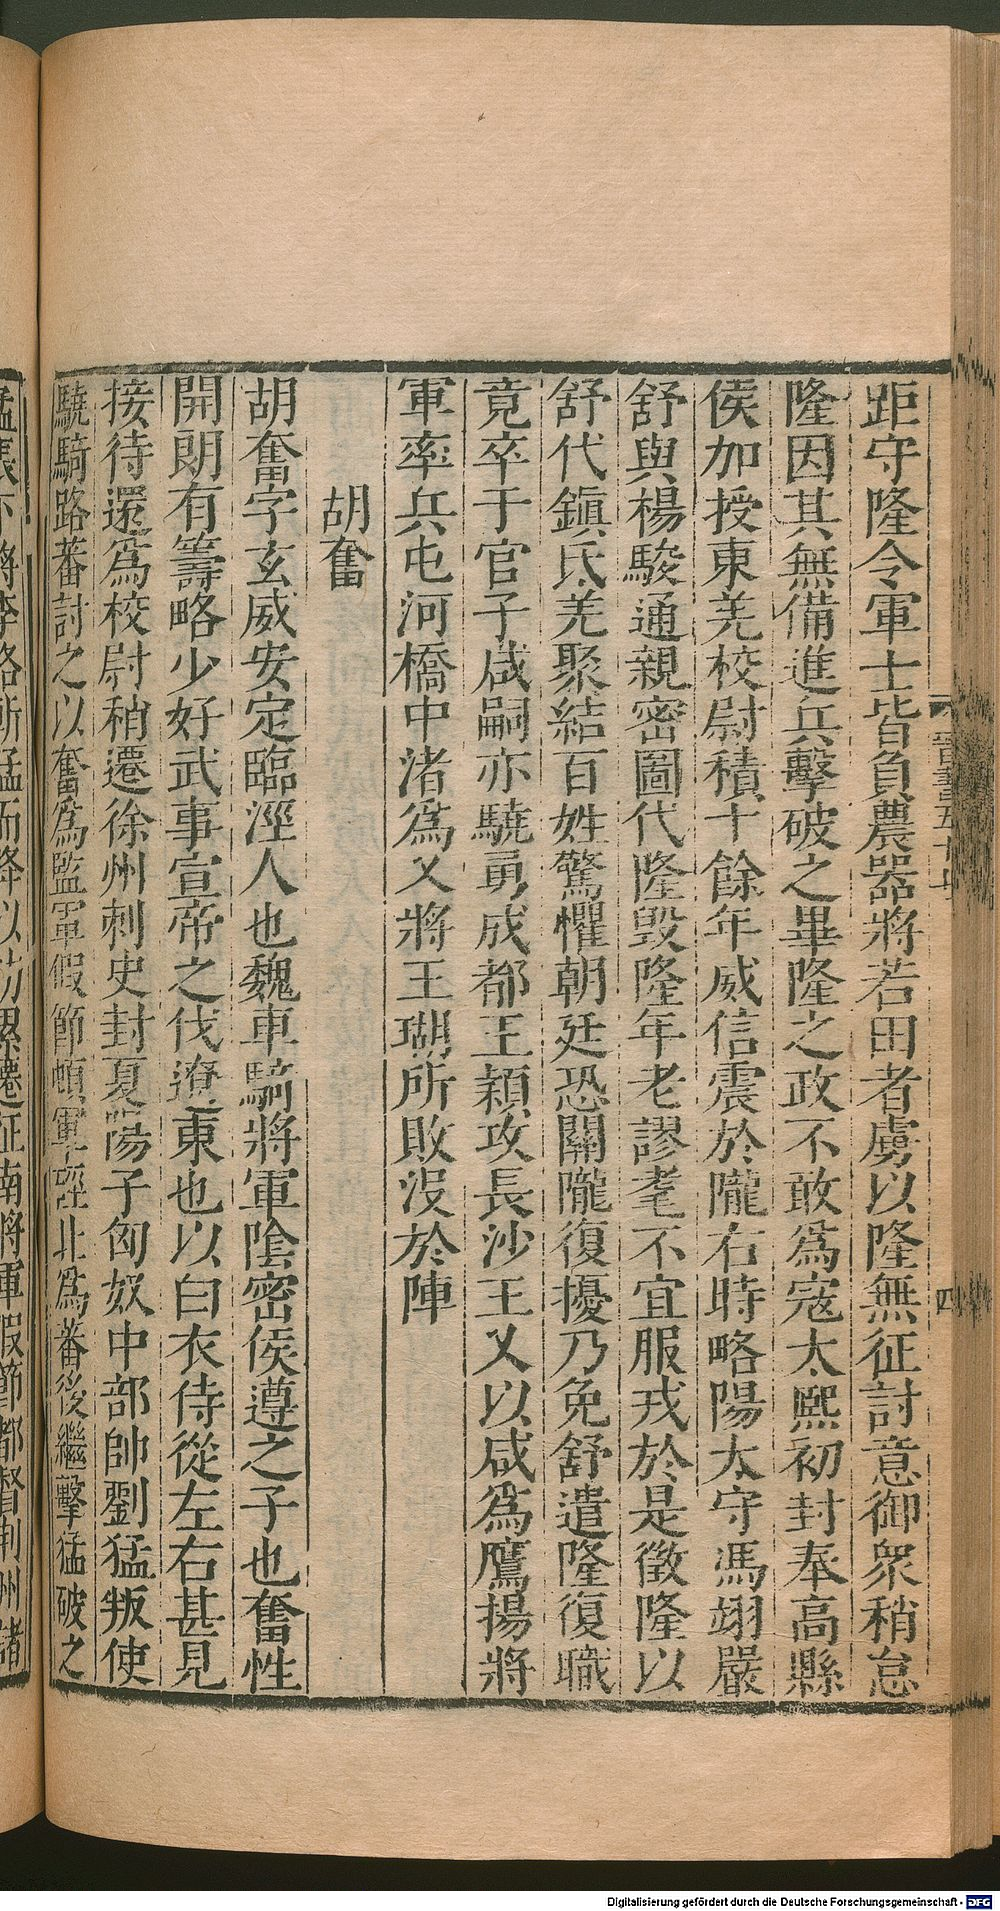 距守隆令軍士皆負農器將若田者虜以隆無征討意御衆稍怠
隆因其無備進兵擊破之畢隆之政不敢爲寇太熙初封奉高縣
侯加授東羌校尉積十餘年威信震於隴右時略陽太守馮翊嚴
舒與楊駿通親密圖代隆毀隆年老謬耄不宜服戎於是徵隆以
舒代鎮氐羌聚結百姓驚懼朝廷恐關隴復擾乃免舒遣隆復職
竟卒于官子咸嗣亦驍勇成都王穎攻長沙王乂以咸爲鷹揚將
軍率兵屯河橋中渚爲乂將王瑚所敗没於陣
胡奮
胡奮字玄威安定臨涇人也魏車騎將軍陰密侯遵之子也奮性
開朗有籌略少好武事宣帝之伐遼東也以白衣侍從左右甚見
接待還爲校尉稍遷徐州刺史封夏陽子匈奴中部帥劉猛叛使
驍騎路蕃討之以奮爲監軍假節頓軍硜北爲蕃後繼擊猛破之
猛帳下將李恪斬猛而降以功累遷征南將軍假節都督荆州諸
晉書五十七
四
Digitalisierung gefördert durch die Deutsche Forschungsgemeinschaft - DFG